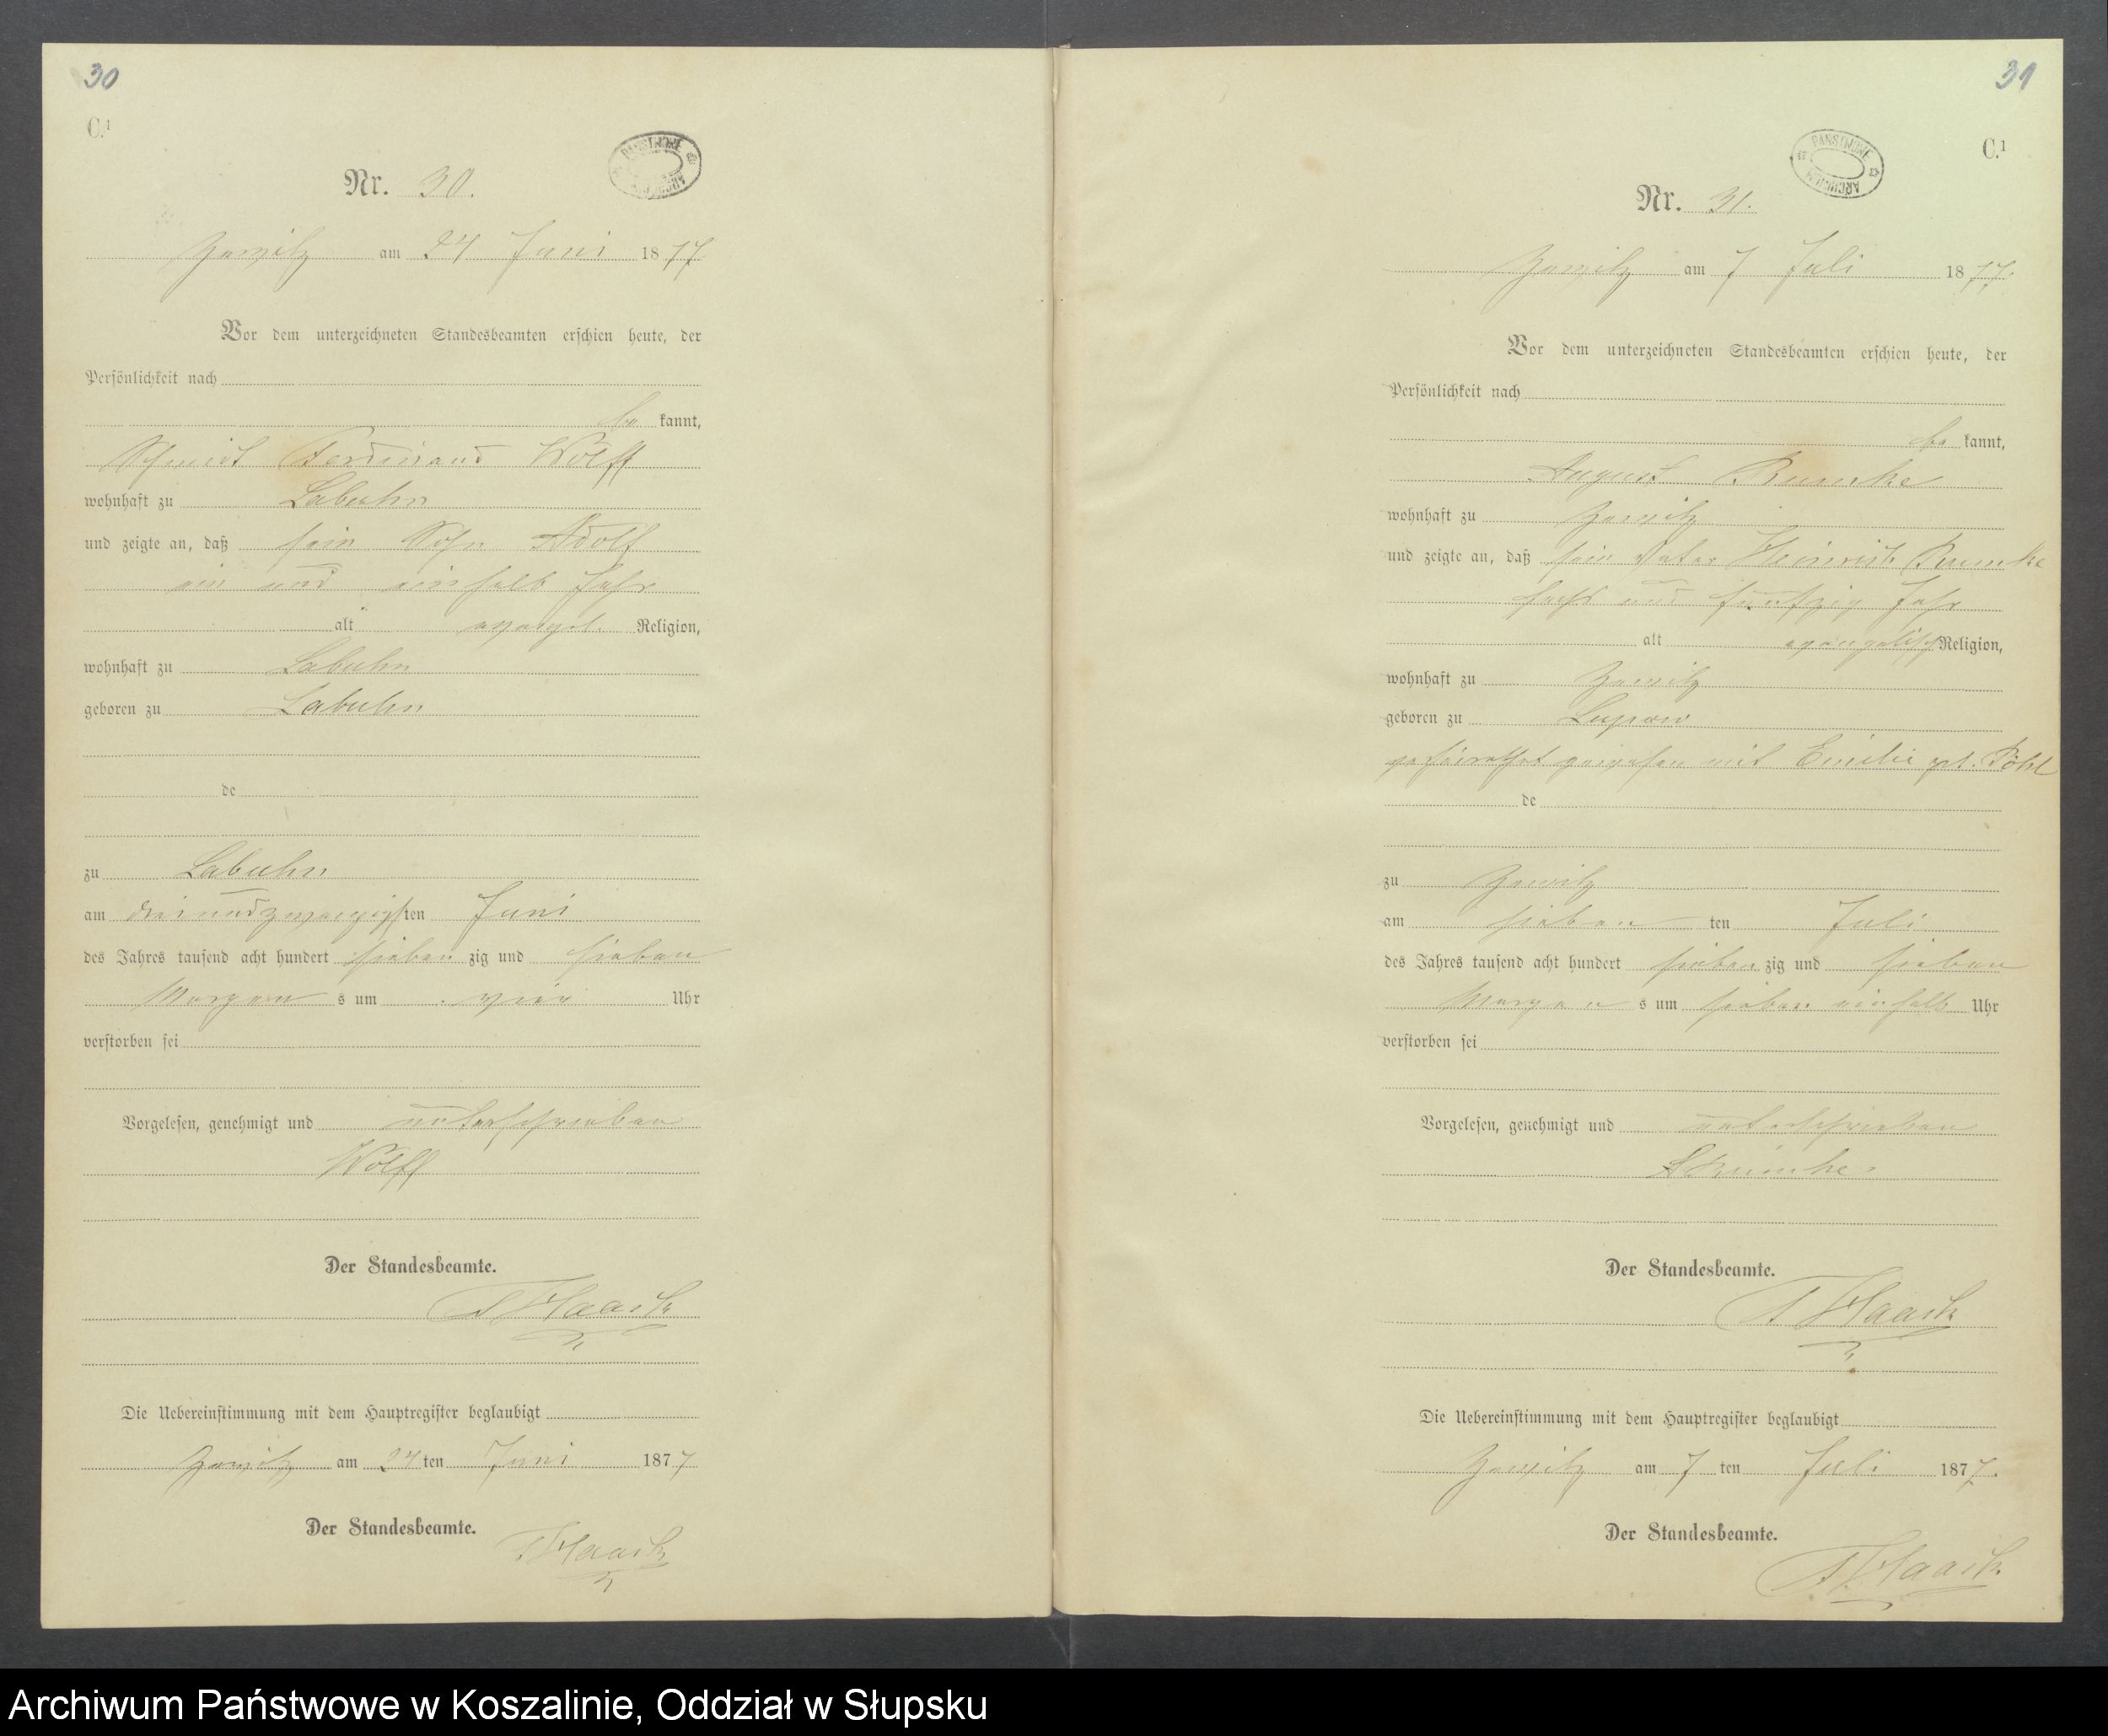 30
C.1
PAŃSTWOWE ARCHIWUM
Nr. 30.
Zewitz am 24 Juni 1877
Vor dem unterzeichneten Standesbeamten erschien heute, der
Persönlichkeit nach
be kannt,
Schmidt Ferdinand Wolff
wohnhaft zu Labuhn
und zeigte an, daß sein Sohn Adolf
ein und einhalb Jahr
alt evangel. Religion,
wohnhaft zu Labuhn
geboren zu Labuhn
de
zu Labuhn
am dreiundzwanzigsten Juni
des Jahres tausend acht hundert sieben zig und sieben
Morgen s um vier Uhr
verstorben sei
Vorgelesen, genehmigt und unterschrieben
Wolff
Der Standesbeamte.
Haack
Die Uebereinstimmung mit dem Hauptregister beglaubigt
Zewitz am 24 ten Juni 1877
Der Standesbeamte.
Haack
31
C.1
PAŃSTWOWE ARCHIWUM
Nr. 31.
Zewitz am 7 Juli 1877.
Vor dem unterzeichneten Standesbeamten erschien heute, der
Persönlichkeit nach
be kannt,
August Rumke
wohnhaft zu Zewitz
und zeigte an, daß sein Vater Heinrich Rumke
sechs und funfzig Jahr
alt evangelisch Religion,
wohnhaft zu Zewitz
geboren zu Lupow
geheirathet gewesen mit Emilie geb. Pöhl
de
zu Zewitz
am sieben ten Juli
des Jahres tausend acht hundert sieben zig und sieben
Morgen s um sieben einhalb Uhr
verstorben sei
Vorgelesen, genehmigt und unterschrieben
A Rumke
Der Standesbeamte.
Haack
Die Uebereinstimmung mit dem Hauptregister beglaubigt
Zewitz am 7 ten Juli 1877.
Der Standesbeamte.
Haack
Archiwum Państwowe w Koszalinie, Oddział w Słupsku